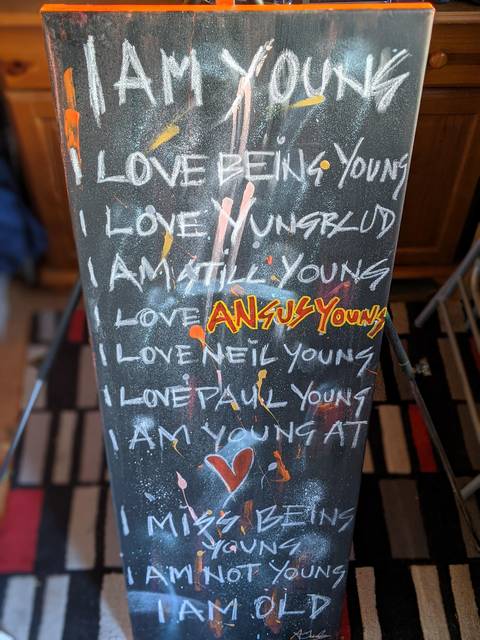 I AM YOUNG
I LOVE BEING YOUNG
I LOVE YUNGBLUD
I AM STILL YOUNG
I LOVE ANGUS YOUNG
I LOVE NEIL YOUNG
I LOVE PAUL YOUNG
I AM YOUNG AT
I MISS BEING
YOUNG
I AM NOT YOUNG
I AM OLD